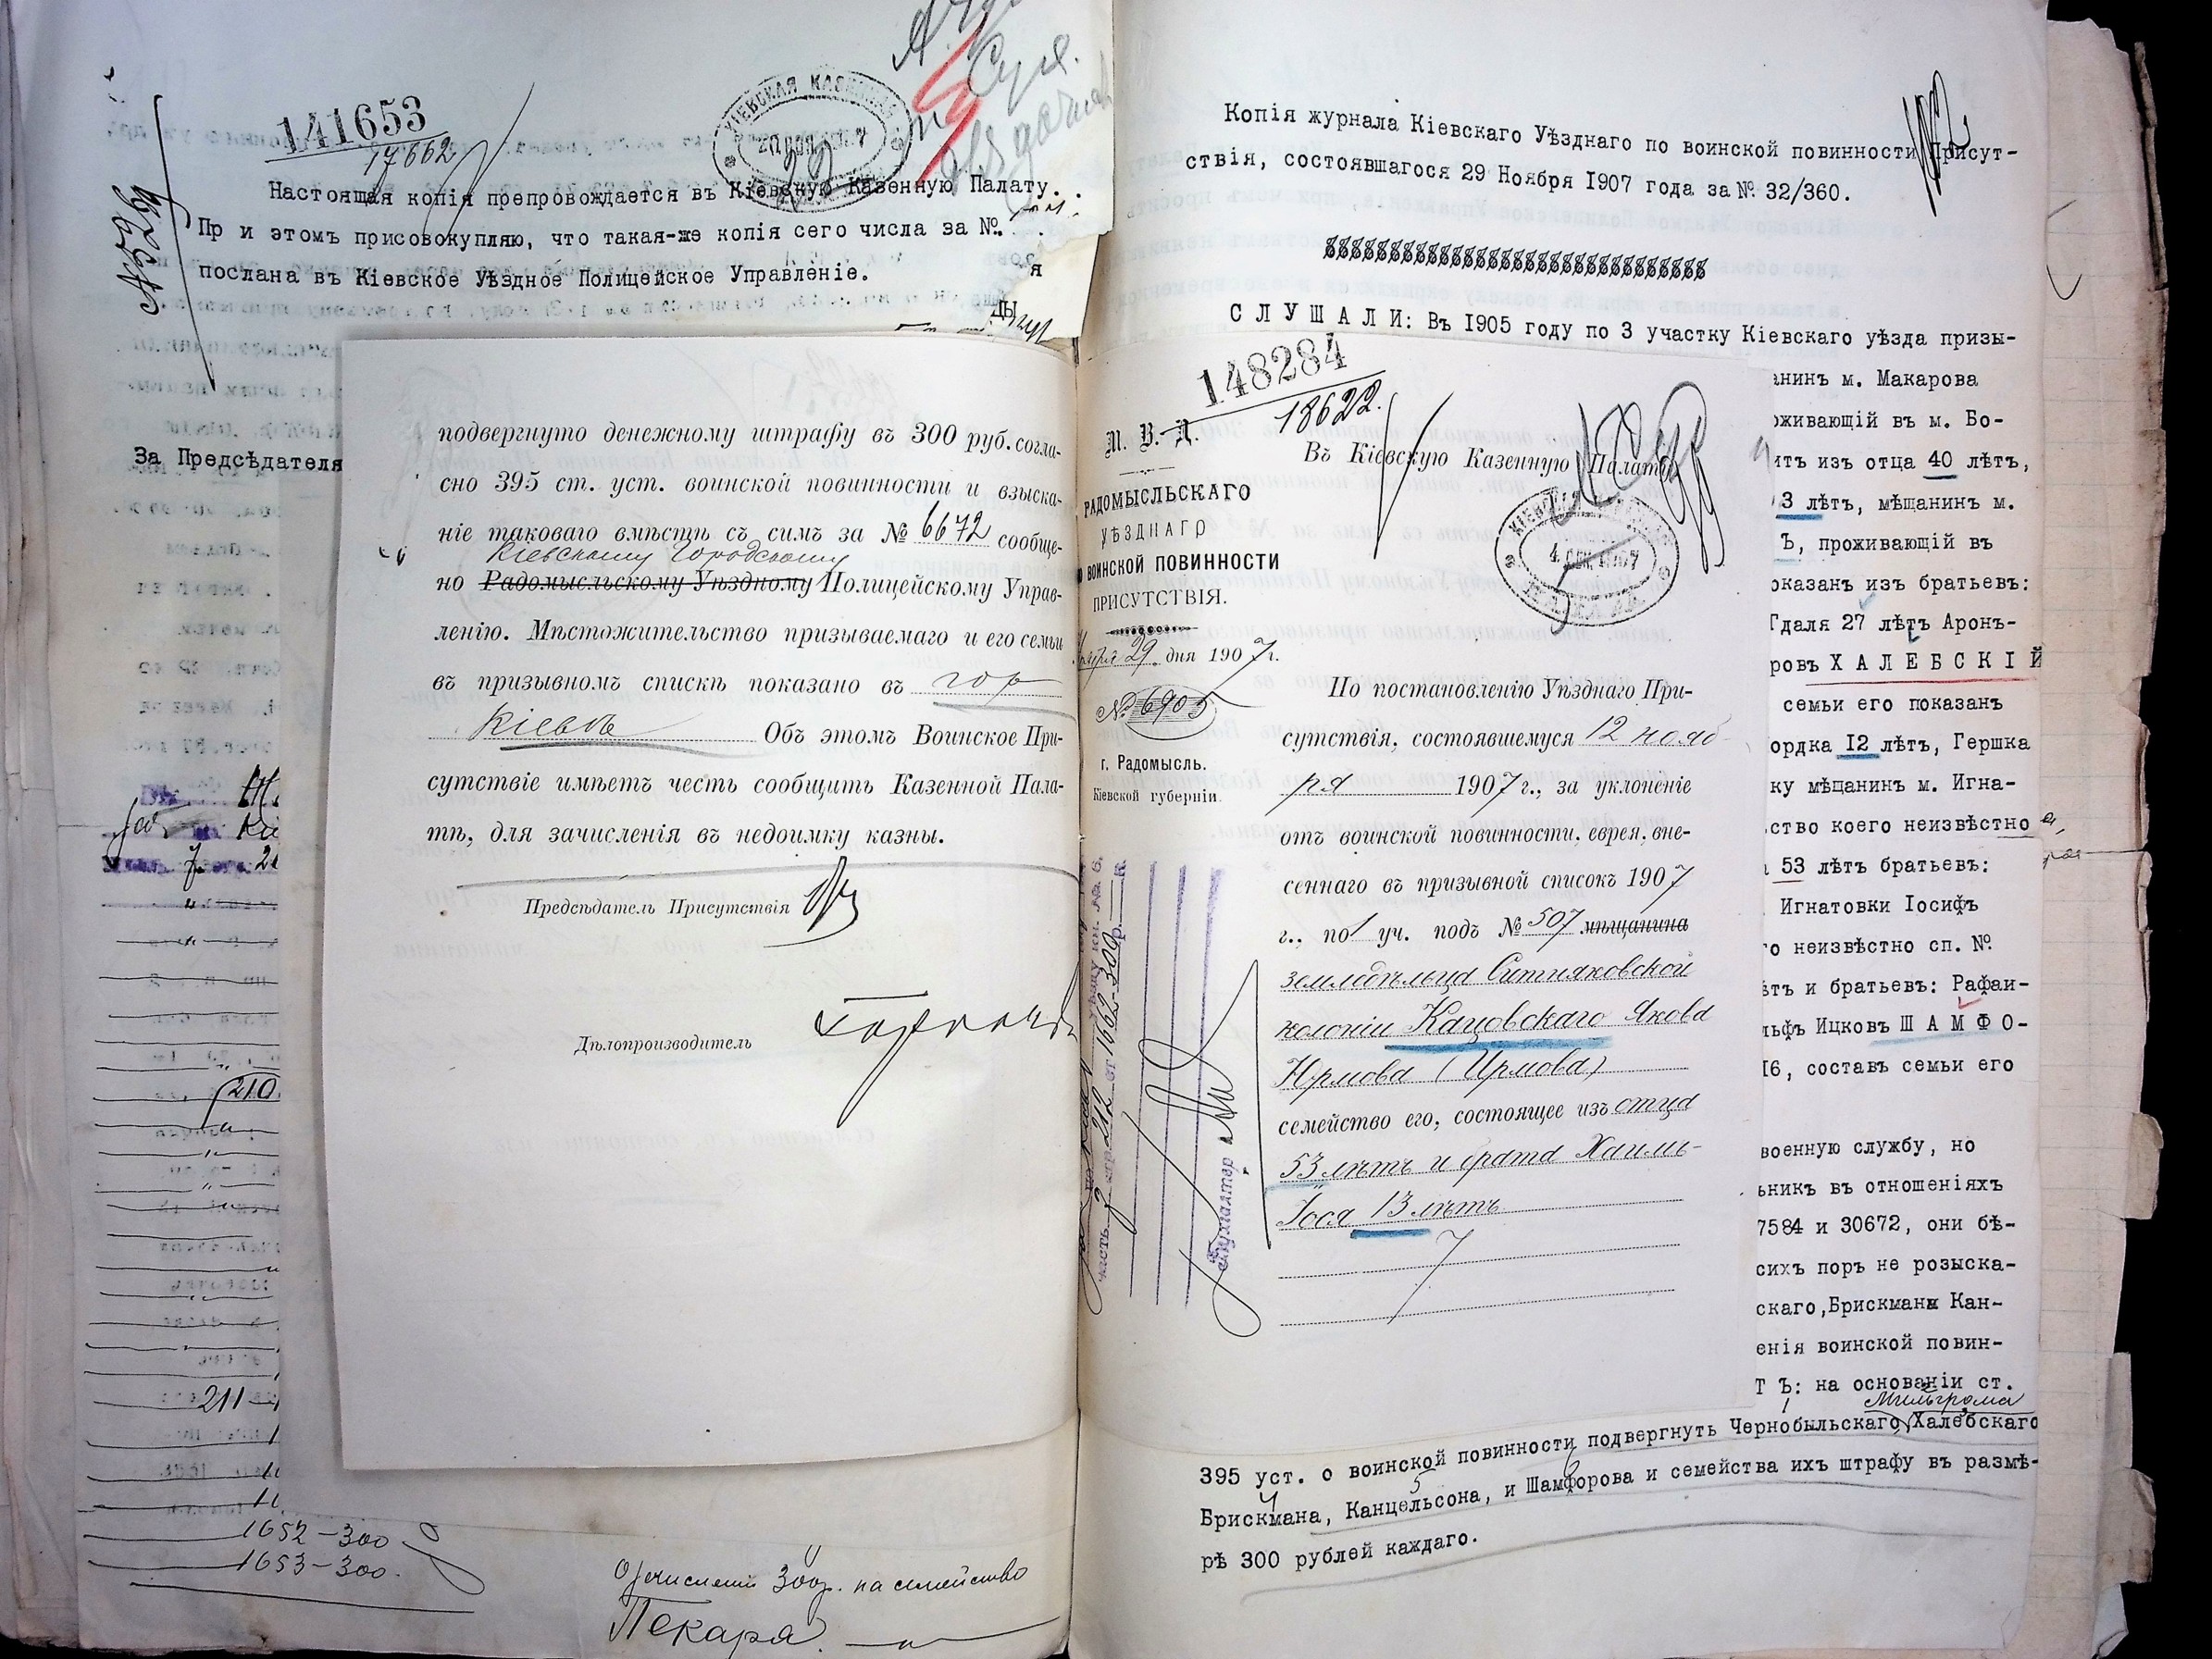 141653
17662
КІЕВСКАЯ КАЗЕННАЯ
Настоящая копія препровождается въ Кіевскую Казенную Палату.
Пр и этомъ присовокупляю, что такая-же копія сего числа за №
послана въ Кіевское Уѣздное Полицейское Управленіе.
я
ДЫ
За Предсѣдателя
подвергнуто денежному штрафу въ 300 руб. согла-
сно 395 ст. уст. воинской повинности и взыска-
ніе таковаго вмѣстѣ съ симъ за № 6672 сообще-
Кіевскому Городскому
но Радомысльскому Уѣздному Полицейскому Управ-
ленію. Мѣстожительство призываемаго и его семьи
въ призывномъ спискѣ показано въ гор
Кіевѣ Объ этомъ Воинское При-
сутствіе имѣетъ честь сообщить Казенной Пала-
тѣ, для зачисленія въ недоимку казны.
Предсѣдатель Присутствія
Дѣлопроизводитель
210
211
1652-300
1653-300.
300р. на семейство
Пекаря.
Копія журнала Кіевскаго Уѣзднаго по воинской повинности Присут-
ствія, состоявшагося 29 Ноября I907 года за №. 32/360.
С Л У Ш А Л И: Въ I905 году по 3 участку Кіевскаго уѣзда призы-
148284
18622.
М. В. Д.
РАДОМЫСЛЬСКАГО
УѢЗДНАГО
ВОИНСКОЙ ПОВИННОСТИ
ПРИСУТСТВІЯ.
29 дня 1907 г.
№ 6905
г. Радомысль.
Кіевской губерніи.
Въ Кіевскую Казенную Палату
По постановленію Уѣзднаго При-
сутствія, состоявшемуся 12 нояб-
ря 1907 г., за уклоненіе
отъ воинской повинности, еврея, вне-
сеннаго въ призывной списокъ 1907
г., по 1 уч. подъ № 507 мѣщанина
земледѣльца Ситняковской
колоніи Кацовскаго Якова
Юрмова (Ирмова)
семейство его, состоящее изъ отца
53 лѣтъ и брата Хаимъ-
Іося 13 лѣтъ
часть 7 стр. 212 ст 1662-300 р. к.
Бухгалтер
анинъ м. Макарова
оживающій въ м. Бо-
итъ изъ отца 40 лѣтъ,
3 лѣтъ, мѣщанинъ м.
Ъ, проживающій въ
оказанъ изъ братьевъ:
Гдаля 27 лѣтъ Аронъ-
ровъ Х А Л Е Б С К І Й
семьи его показан
ордка I2 лѣтъ, Гершка
ку мѣщанин м. Игна-
ство коего неизвѣстно
53 лѣтъ братьевъ:
Игнатовки Іосифъ
о неизвѣстно сп. №.
ѣтъ и братьевъ: Рафаи-
льфъ Ицковъ Ш А М Ф О-
I6, составъ семьи его
военную службу, но
ьникъ въ отношеніяхъ
7584 и 30672, они бѣ-
сихъ поръ не розыска-
скаго,Брискмана Кан-
енія воинской повин-
Т Ъ: на основаніи ст.
Мильгрома
395 уст. о воинской повинности подвергнуть Чернобыльскаго,Халебскаго
Брискмана, Канцельсона, и Шамфорова и семейства ихъ штрафу въ размѣ-
рѣ 300 рублей каждаго.